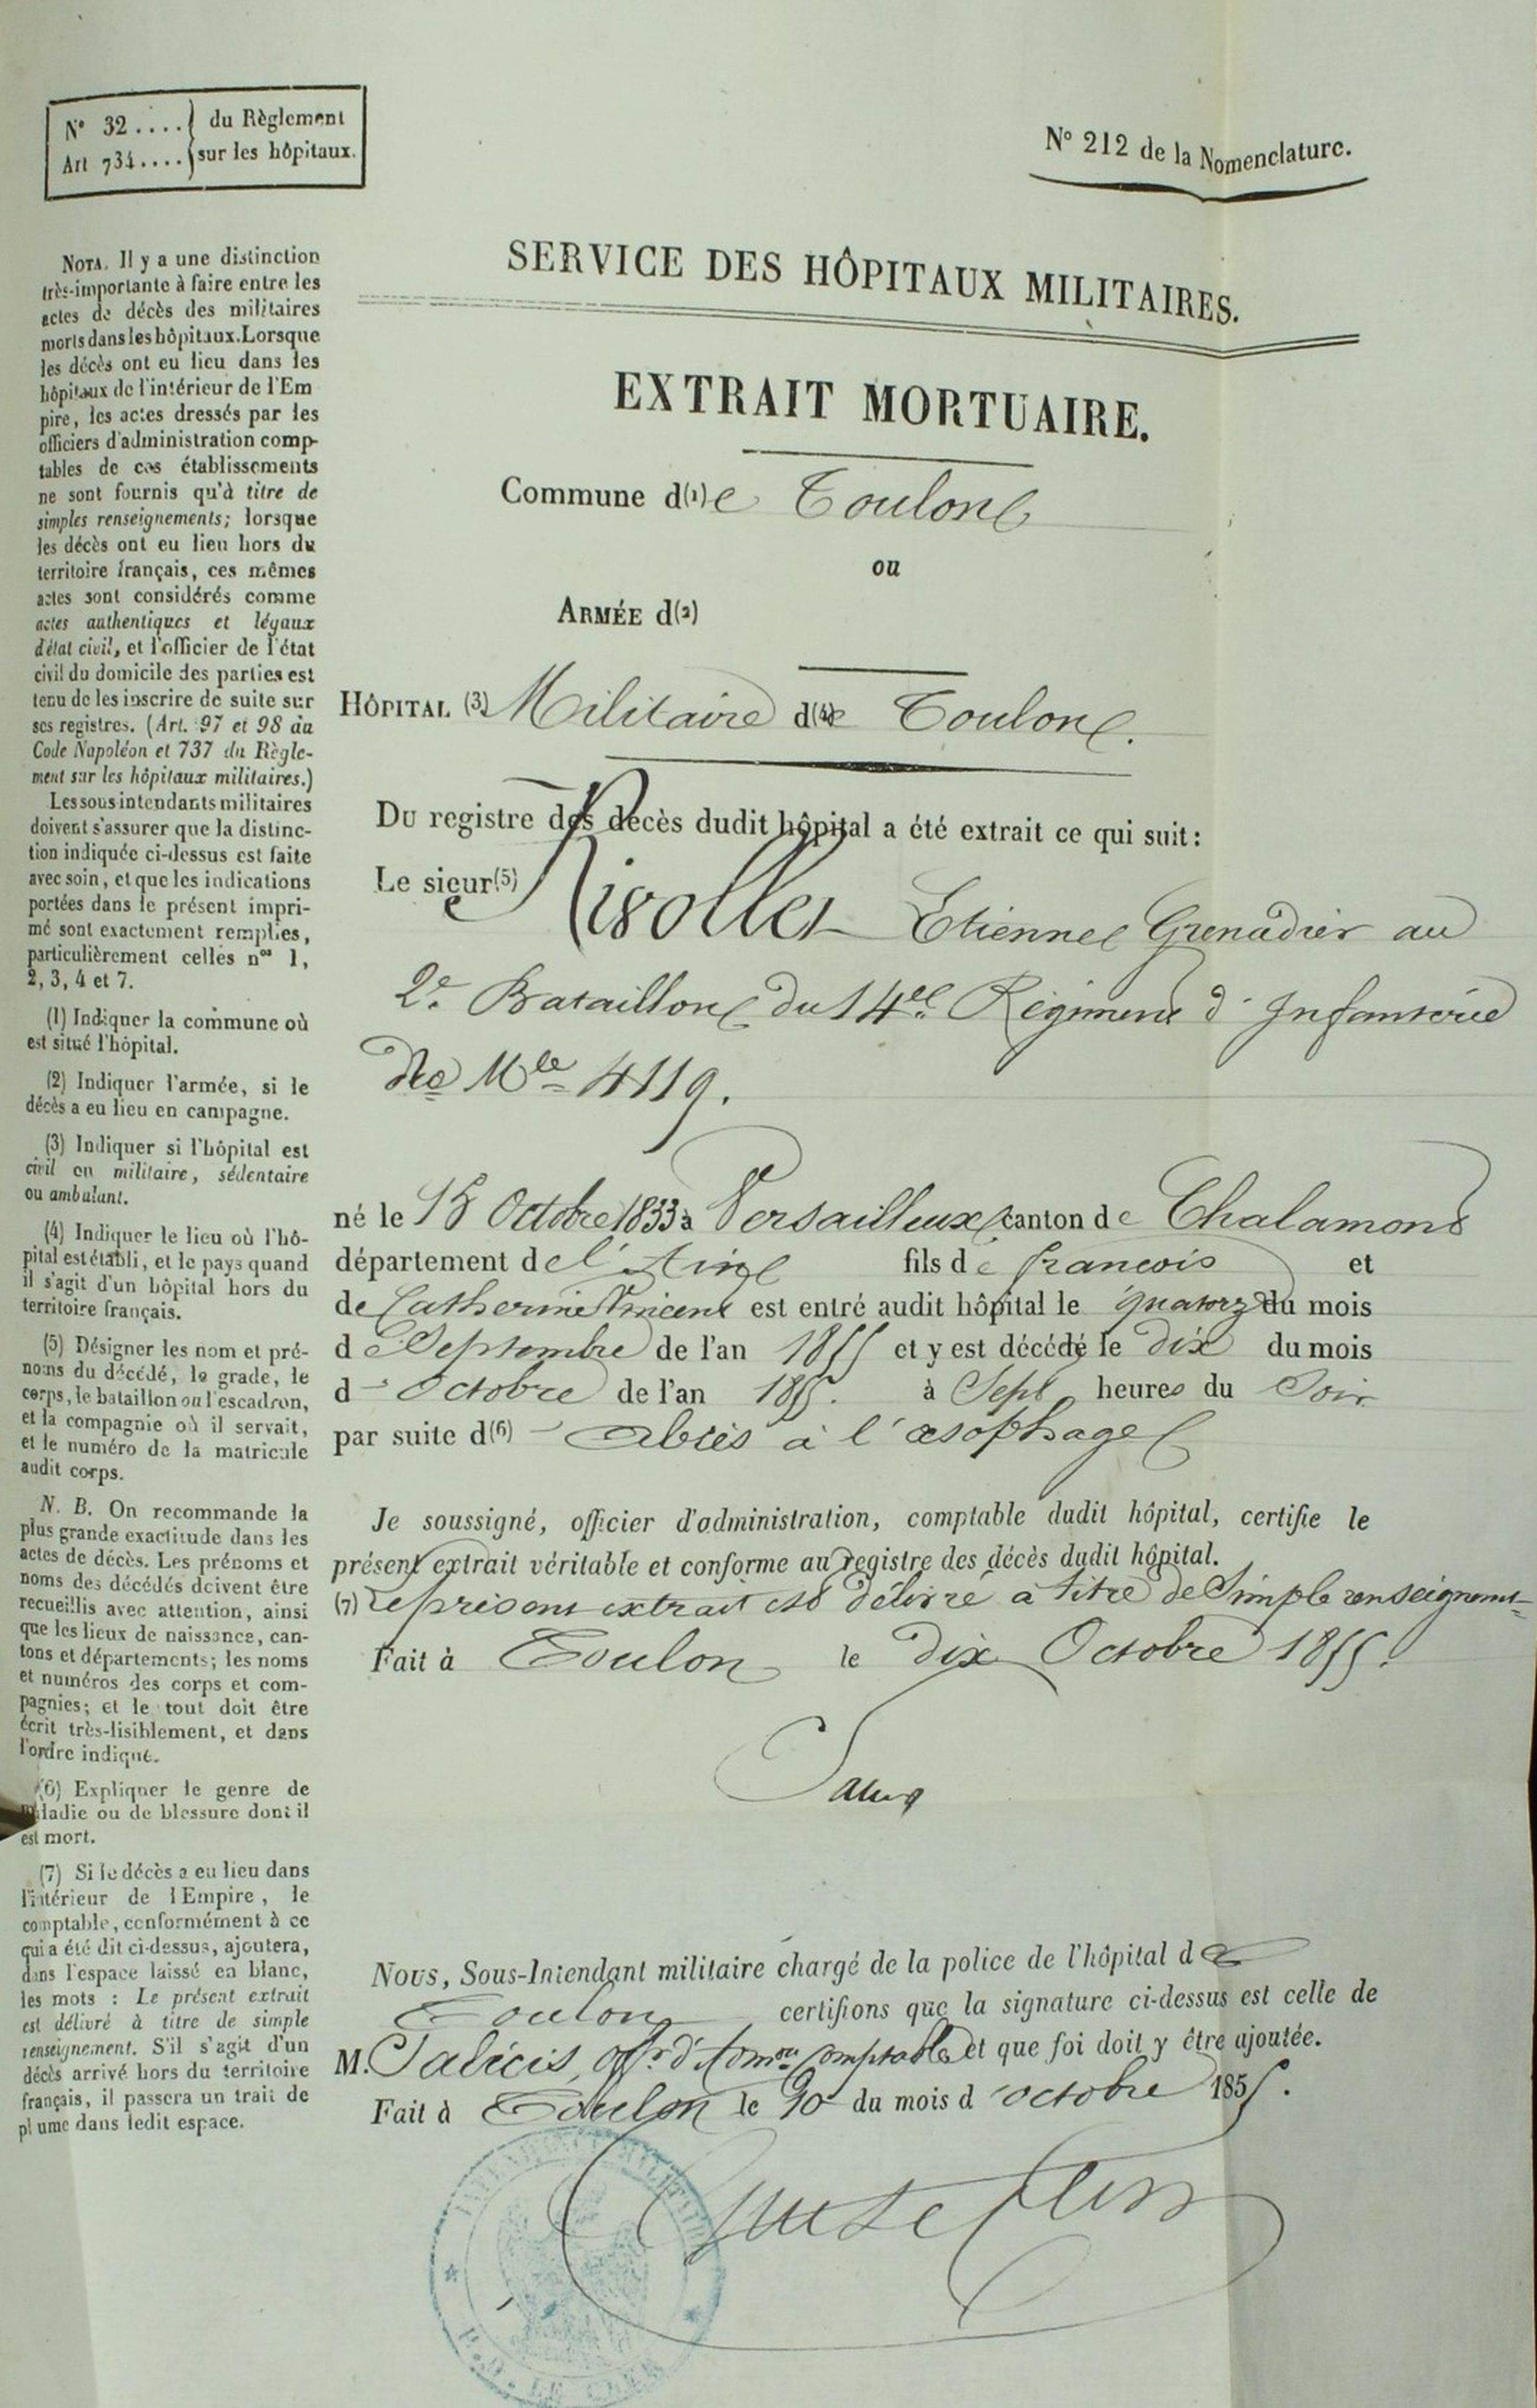 N° 32 .... du Règlement
Art 734 .... sur les hôpitaux.
N° 212 de la Nomenclature.
NOTA. Il y a une distinction
très-importante à faire entre les
actes de décès des militaires
morts dans les hôpitaux. Lorsque
les décès ont eu lieu dans les
hôpitaux de l'intérieur de l'Em
pire, les actes dressés par les
officiers d'administration comp-
tables de ces établissements
ne sont fournis qu'à titre de
simples renseignements; lorsque
les décès ont eu lieu hors du
territoire français, ces mêmes
actes sont considérés comme
actes authentiques et légaux
d'état civil, et l'officier de l'état
civil du domicile des parties est
tenu de les inscrire de suite sur
ses registres. (Art. 97 et 98 du
Code Napoléon et 737 du Règle-
ment sur les hôpitaux militaires.)
Les sous intendants militaires
doivent s'assurer que la distinc-
tion indiquée ci-dessus est faite
avec soin, et que les indications
portées dans le présent impri-
mé sont exactement remplies,
particulièrement celles nos 1,
2, 3, 4 et 7.
(1) Indiquer la commune où
est situé l'hôpital.
(2) Indiquer l'armée, si le
décès a eu lieu en campagne.
(3) Indiquer si l'hôpital est
civil ou militaire, sédentaire
ou ambulant.
(4) Indiquer le lieu où l'hô-
pital est établi, et le pays quand
il s'agit d'un hôpital hors du
territoire français.
(5) Désigner les nom et pré-
noms du décédé, le grade, le
corps, le bataillon ou l'escadron,
et la compagnie où il servait,
et le numéro de la matricule
audit corps.
N. B. On recommande la
plus grande exactitude dans les
actes de décès. Les prénoms et
noms des décédés doivent être
recueillis avec attention, ainsi
que les lieux de naissance, can-
tons et départements; les noms
et numéros des corps et com-
pagnies; et le tout doit être
écrit très-lisiblement, et dans
l'ordre indiqué.
(6) Expliquer le genre de
maladie ou de blessure dont il
est mort.
(7) Si le décès a eu lieu dans
l'intérieur de l'Empire, le
comptable, conformément à ce
qui a été dit ci-dessus, ajoutera,
dans l'espace laissé en blanc,
les mots : Le présent extrait
est délivré à titre de simple
renseignement. S'il s'agit d'un
décès arrivé hors du territoire
français, il passera un trait de
plume dans ledit espace.
SERVICE DES HÔPITAUX MILITAIRES.
EXTRAIT MORTUAIRE.
Commune d(1)e Toulon
ou
ARMÉE d(2)
HÔPITAL (3) Militaire d(4)e Toulon.
Du registre des décès dudit hôpital a été extrait ce qui suit:
Le sieur(5) Rivollet Etienne Grenadier au
2e Bataillon du 14e Régiment d'Infanterie
No Mle 4119.
né le 15 Octobre 1833 à Versailleux canton de Chalamont
département de l'Ain fils de francois et
de Catherine Vincent est entré audit hôpital le quatorze du mois
de Septembre de l'an 1855 et y est décédé le dix du mois
d'Octobre de l'an 1855. à Sept heures du Soir
par suite d(6) Abcès à l'œsophage
Je soussigné, officier d'administration, comptable dudit hôpital, certifie le
présent extrait véritable et conforme au registre des décès dudit hôpital.
(7) Le présent extrait est délivré à titre de Simple renseignement
Fait à Toulon le dix Octobre 1855.
Nous, Sous-Intendant militaire chargé de la police de l'hôpital de
Toulon certifions que la signature ci-dessus est celle de
M. Salicis, offr d'Admon Comptable et que foi doit y être ajoutée.
Fait à Toulon le 10 du mois d'octobre 1855.